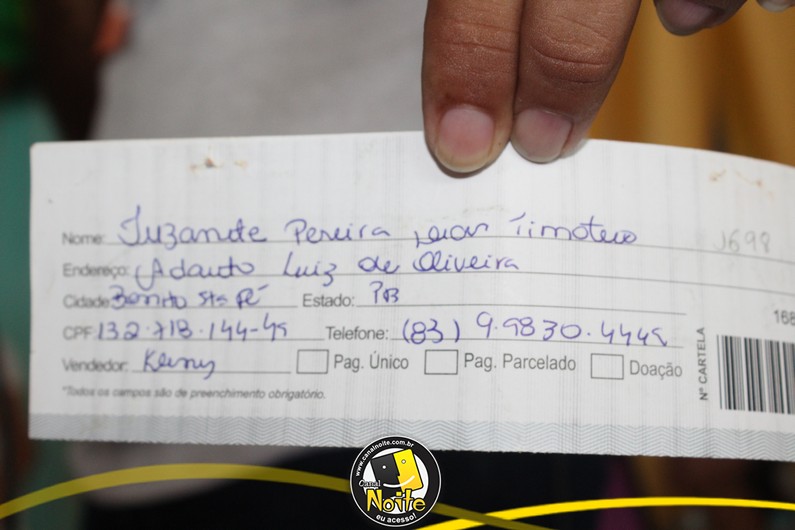 Nome: Juzande Pereira Timoteo
1698
Endereço: Adauto Luiz de Oliveira
Cidade Bonito Sta Fé Estado: PB
168
CPF: 132.718.144-45 Telefone: (83) 9.9830.4445
Vendedor: Keny Pag. Único Pag. Parcelado Doação
Nº CARTELA
*Todos os campos são de preenchimento obrigatório.
www.canalnoite.com.br
Canal
NOITE
eu acesso!